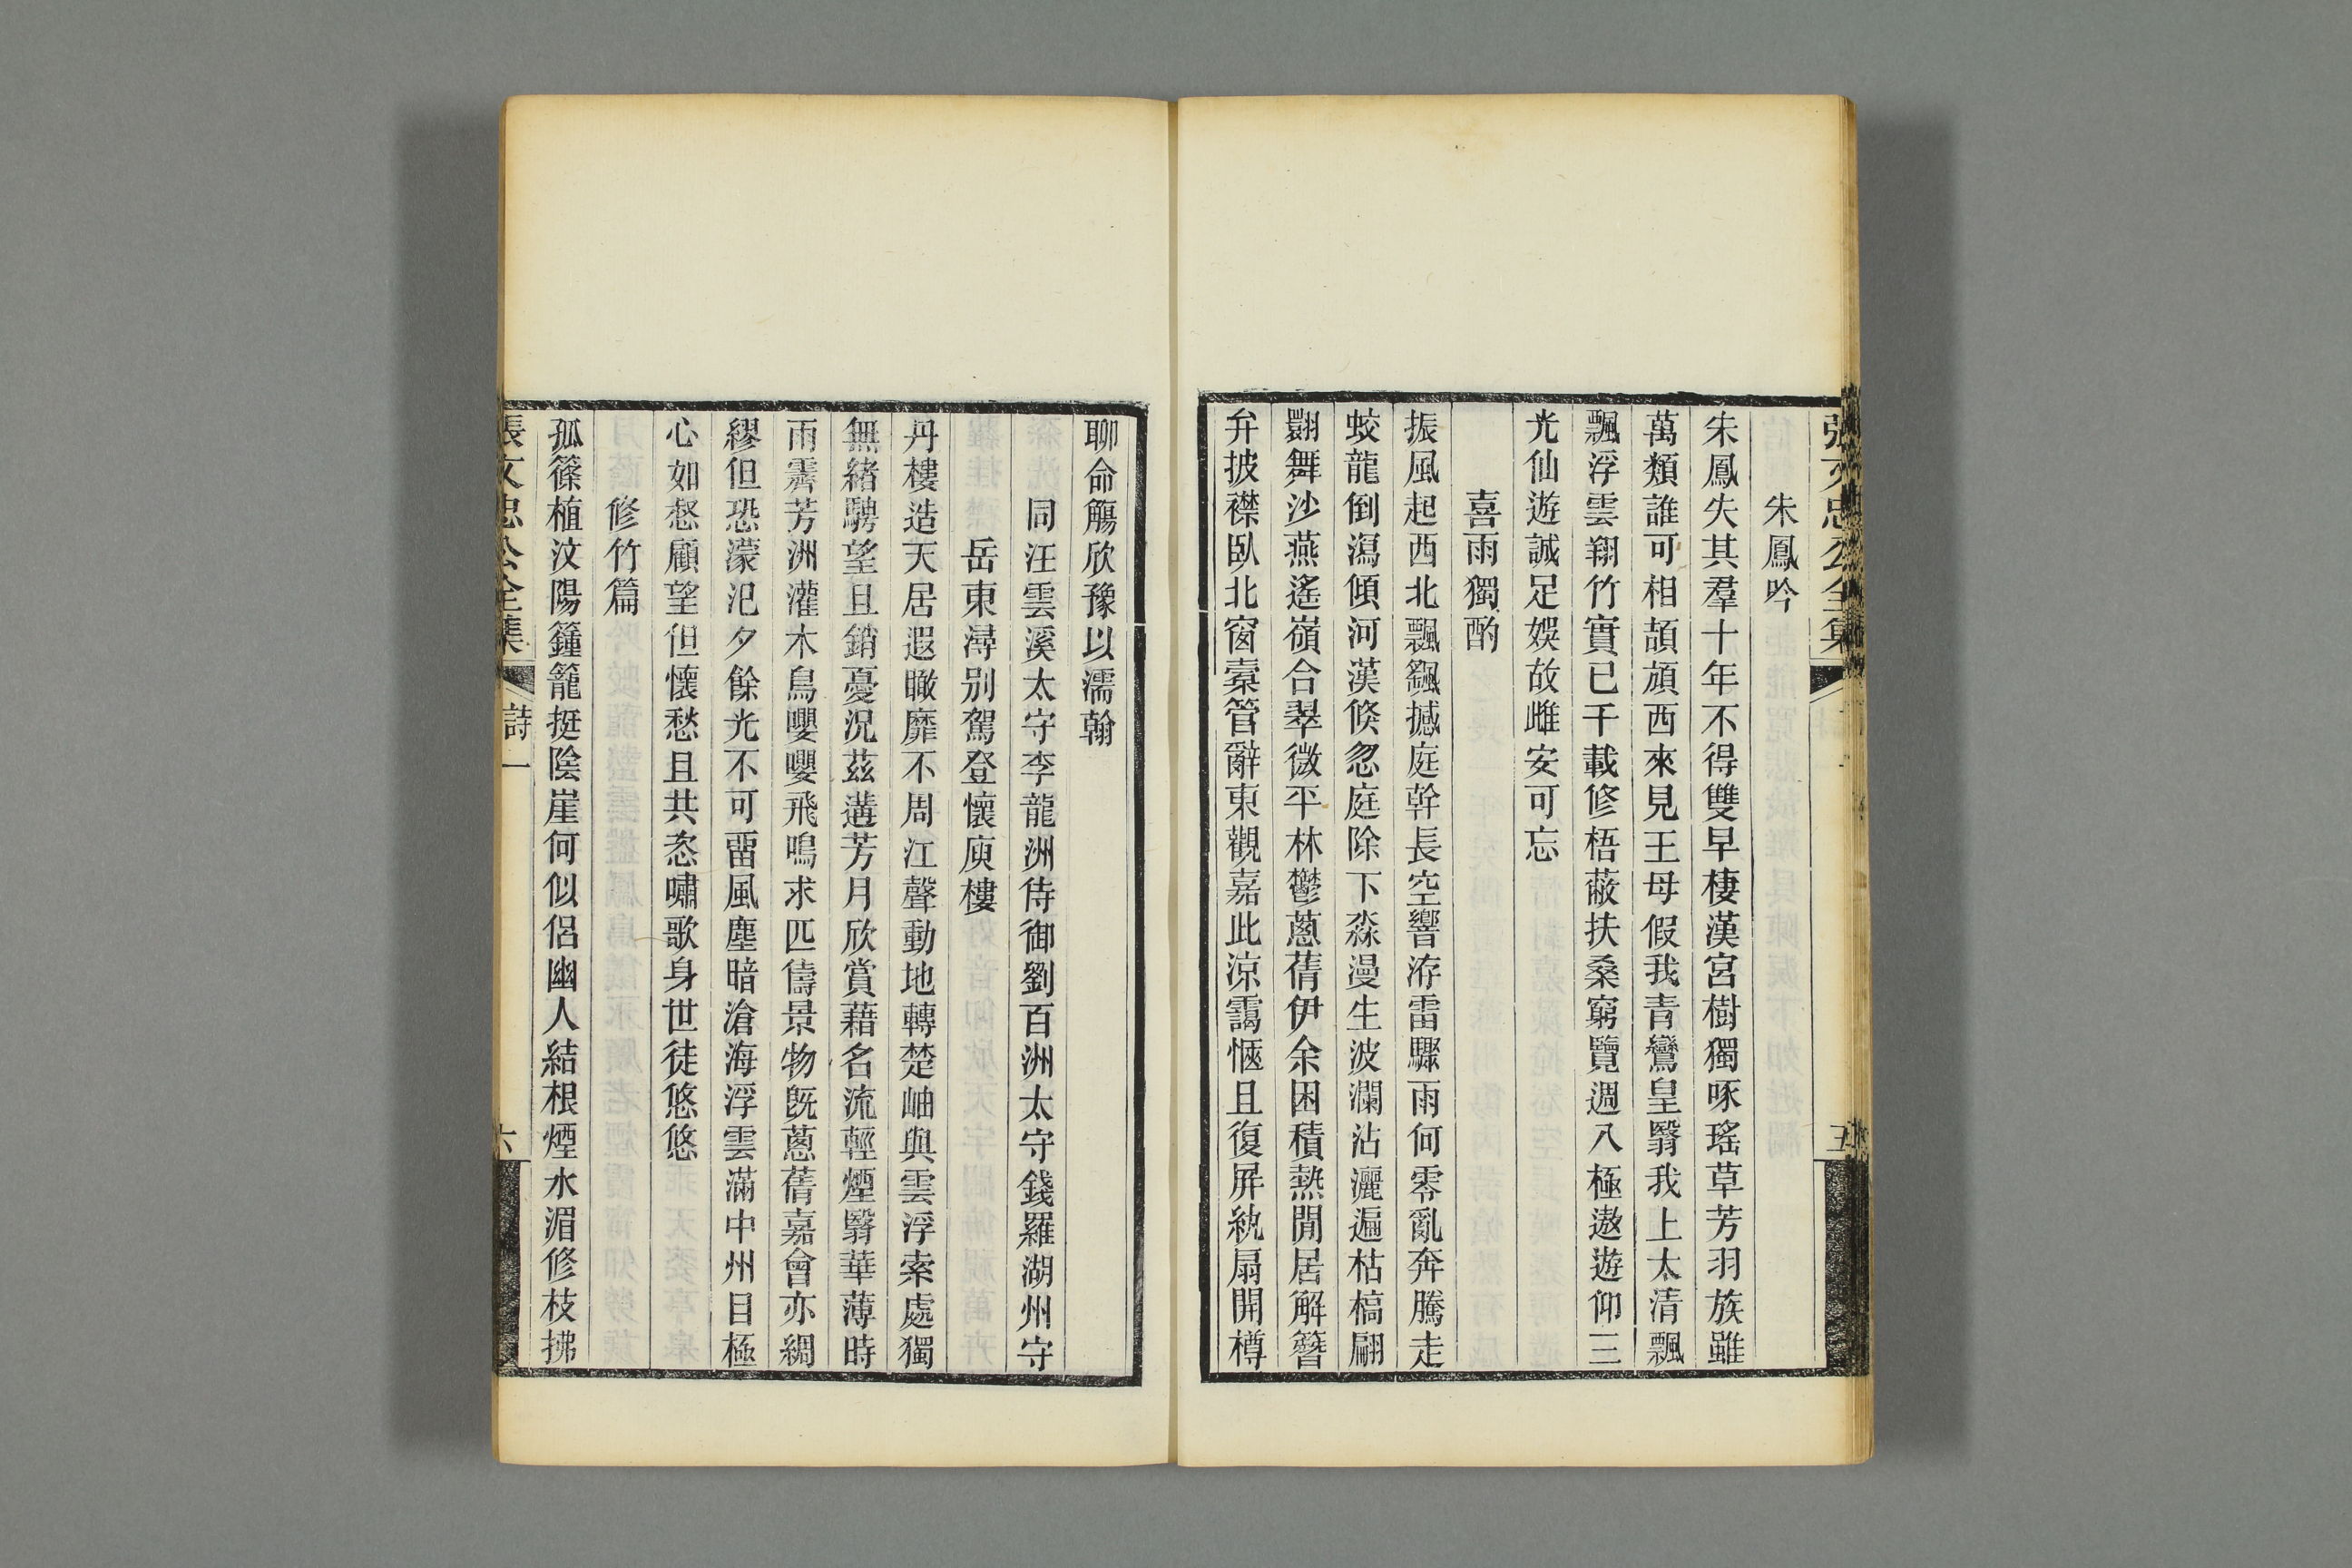 張文忠公全集
五
朱鳳吟
朱鳳失其羣十年不得雙早棲漢宮樹獨啄瑤草芳羽族雖
萬類誰可相頡頏西來見王母假我青鸞皇翳我上太清飄
飄浮雲翔竹實已千載修梧蔽扶桑窮覽週八極遨遊仰三
光仙遊誠足娛故雌安可忘
喜雨獨酌
振風起西北飄飖撼庭幹長空響洊雷驟雨何零亂奔騰走
蛟龍倒瀉傾河漢倏忽庭除下淼漫生波瀾沾灑遍枯槁翩
翾舞沙燕遙嶺合翠微平林鬱蔥蒨伊余困積熱閒居解簪
弁披襟臥北窗橐管辭東觀嘉此涼靄愜且復屏紈扇開樽
聊命觴欣豫以濡翰
同汪雲溪太守李龍洲侍御劉百洲太守錢羅湖州守
岳東潯別駕登懷庾樓
丹樓造天居遐瞰靡不周江聲動地轉楚岫與雲浮索處獨
無緒騁望且銷憂況茲遘芳月欣賞藉名流輕煙翳華薄時
雨霽芳洲灌木鳥嚶嚶飛鳴求匹儔景物既蔥蒨嘉會亦綢
繆但恐濛汜夕餘光不可畱風塵暗滄海浮雲滿中州目極
心如惄顧望但懷愁且共恣嘯歌身世徒悠悠
修竹篇
孤篠植汶陽籦籠挺陰崖何似侶幽人結根煙水湄修枝拂
張文忠公全集
詩一
六